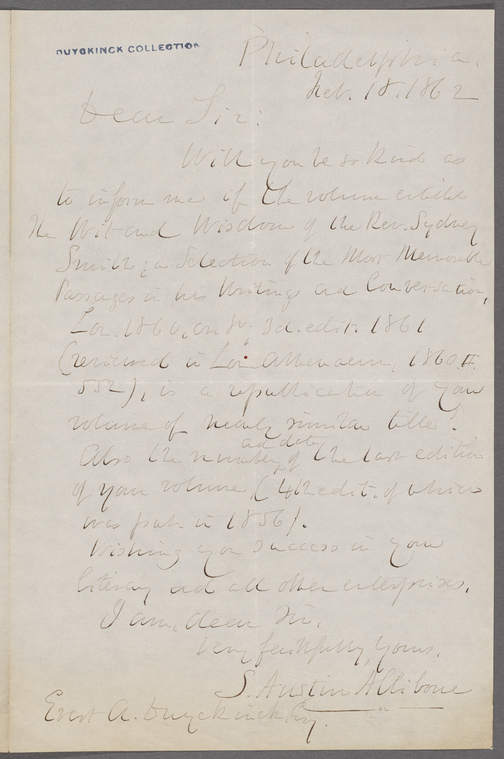 DUYCKINCK COLLECTION
Philadelphia,
Feb. 18. 1862
Dear Sir:
Will you be so kind as
to inform me if the volume entitled
The Wit and Wisdom of the Rev. Sydney
Smith; a Selection of the Most Memorable
Passages in his Writings and Conversation,
Lon. 1860, 8º. 3d. edit. 1861
(reviewed in Lon. Athenaeum, 1860. II.
552), is a republication of your
volume of nearly similar title?
Also the number and date of the last edition
of your volume, (4th edit. of which
was pub. in 1856).
Wishing you success in your
literary and all other enterprises,
I am, dear Sir,
Very faithfully, yours,
S. Austin Allibone
Evert A. Duyckinck Esq.